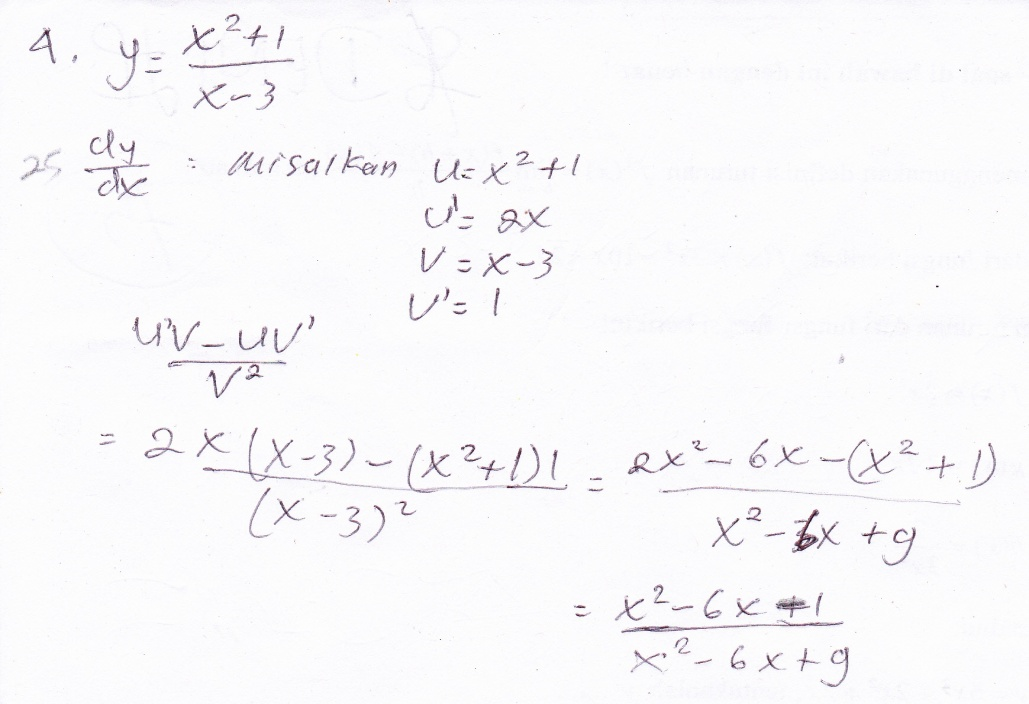 4. y = x²+1 / x-3
25 dy/dx : Misalkan u = x²+1
u' = 2x
v = x-3
v' = 1
u'v - uv' / v²
= 2x(x-3) - (x²+1)1 / (x-3)² = 2x² - 6x - (x²+1) / x² - 6x + 9
= x² - 6x - 1 / x² - 6x + 9